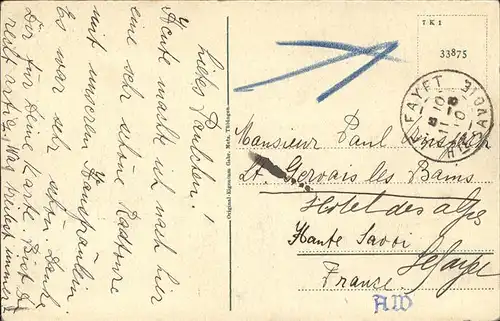 Liebes Paulchen!
Heute macht ich nach hier
eine sehr schöne Radtour
mit unserem Hausfräulein
Es war sehr schön. Danke
Dir für Deine Karte. Bist D
Original-Eigentum Gebr. Metz, Tübingen.
TK1
33875
LE FAYET
HTE SAVOIE
Monsieur Paul
St. Gervais les Bains
Hotel des alpes
Haute Savoi
Le Fayet
France.
AW